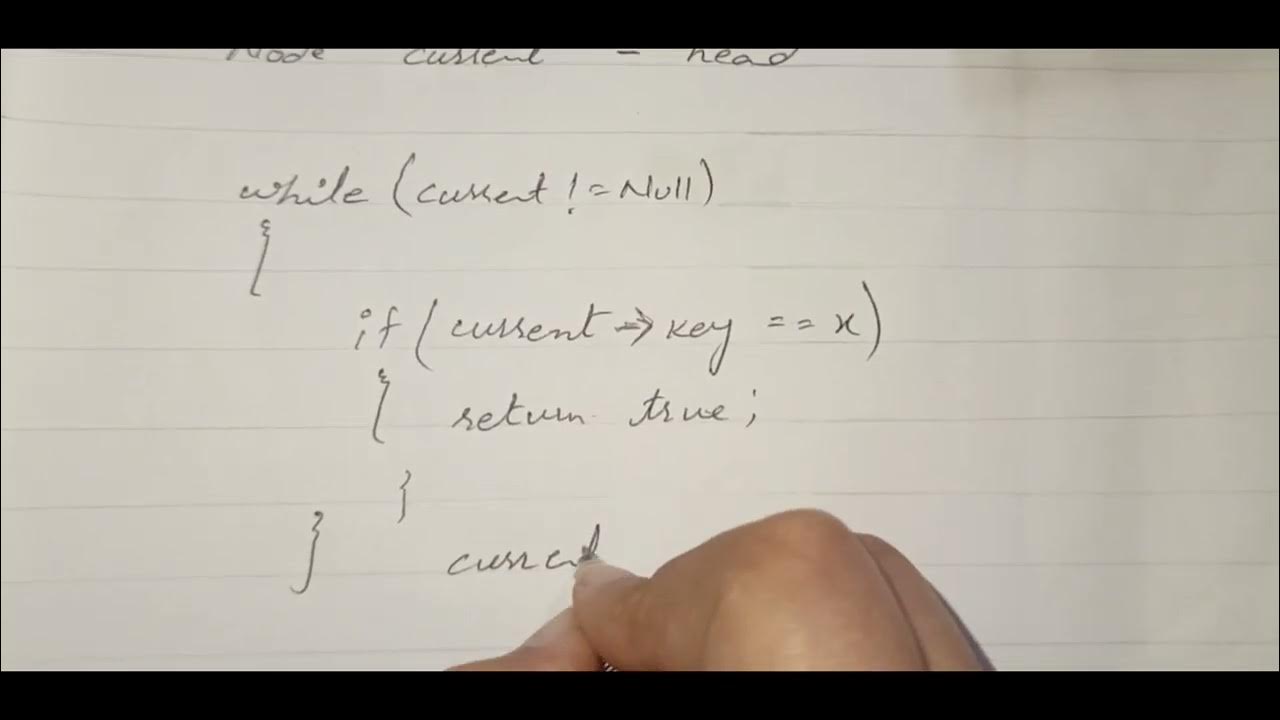 Node current = head
while (current != Null)
{
if (current → key == x)
{ return true;
}
} current